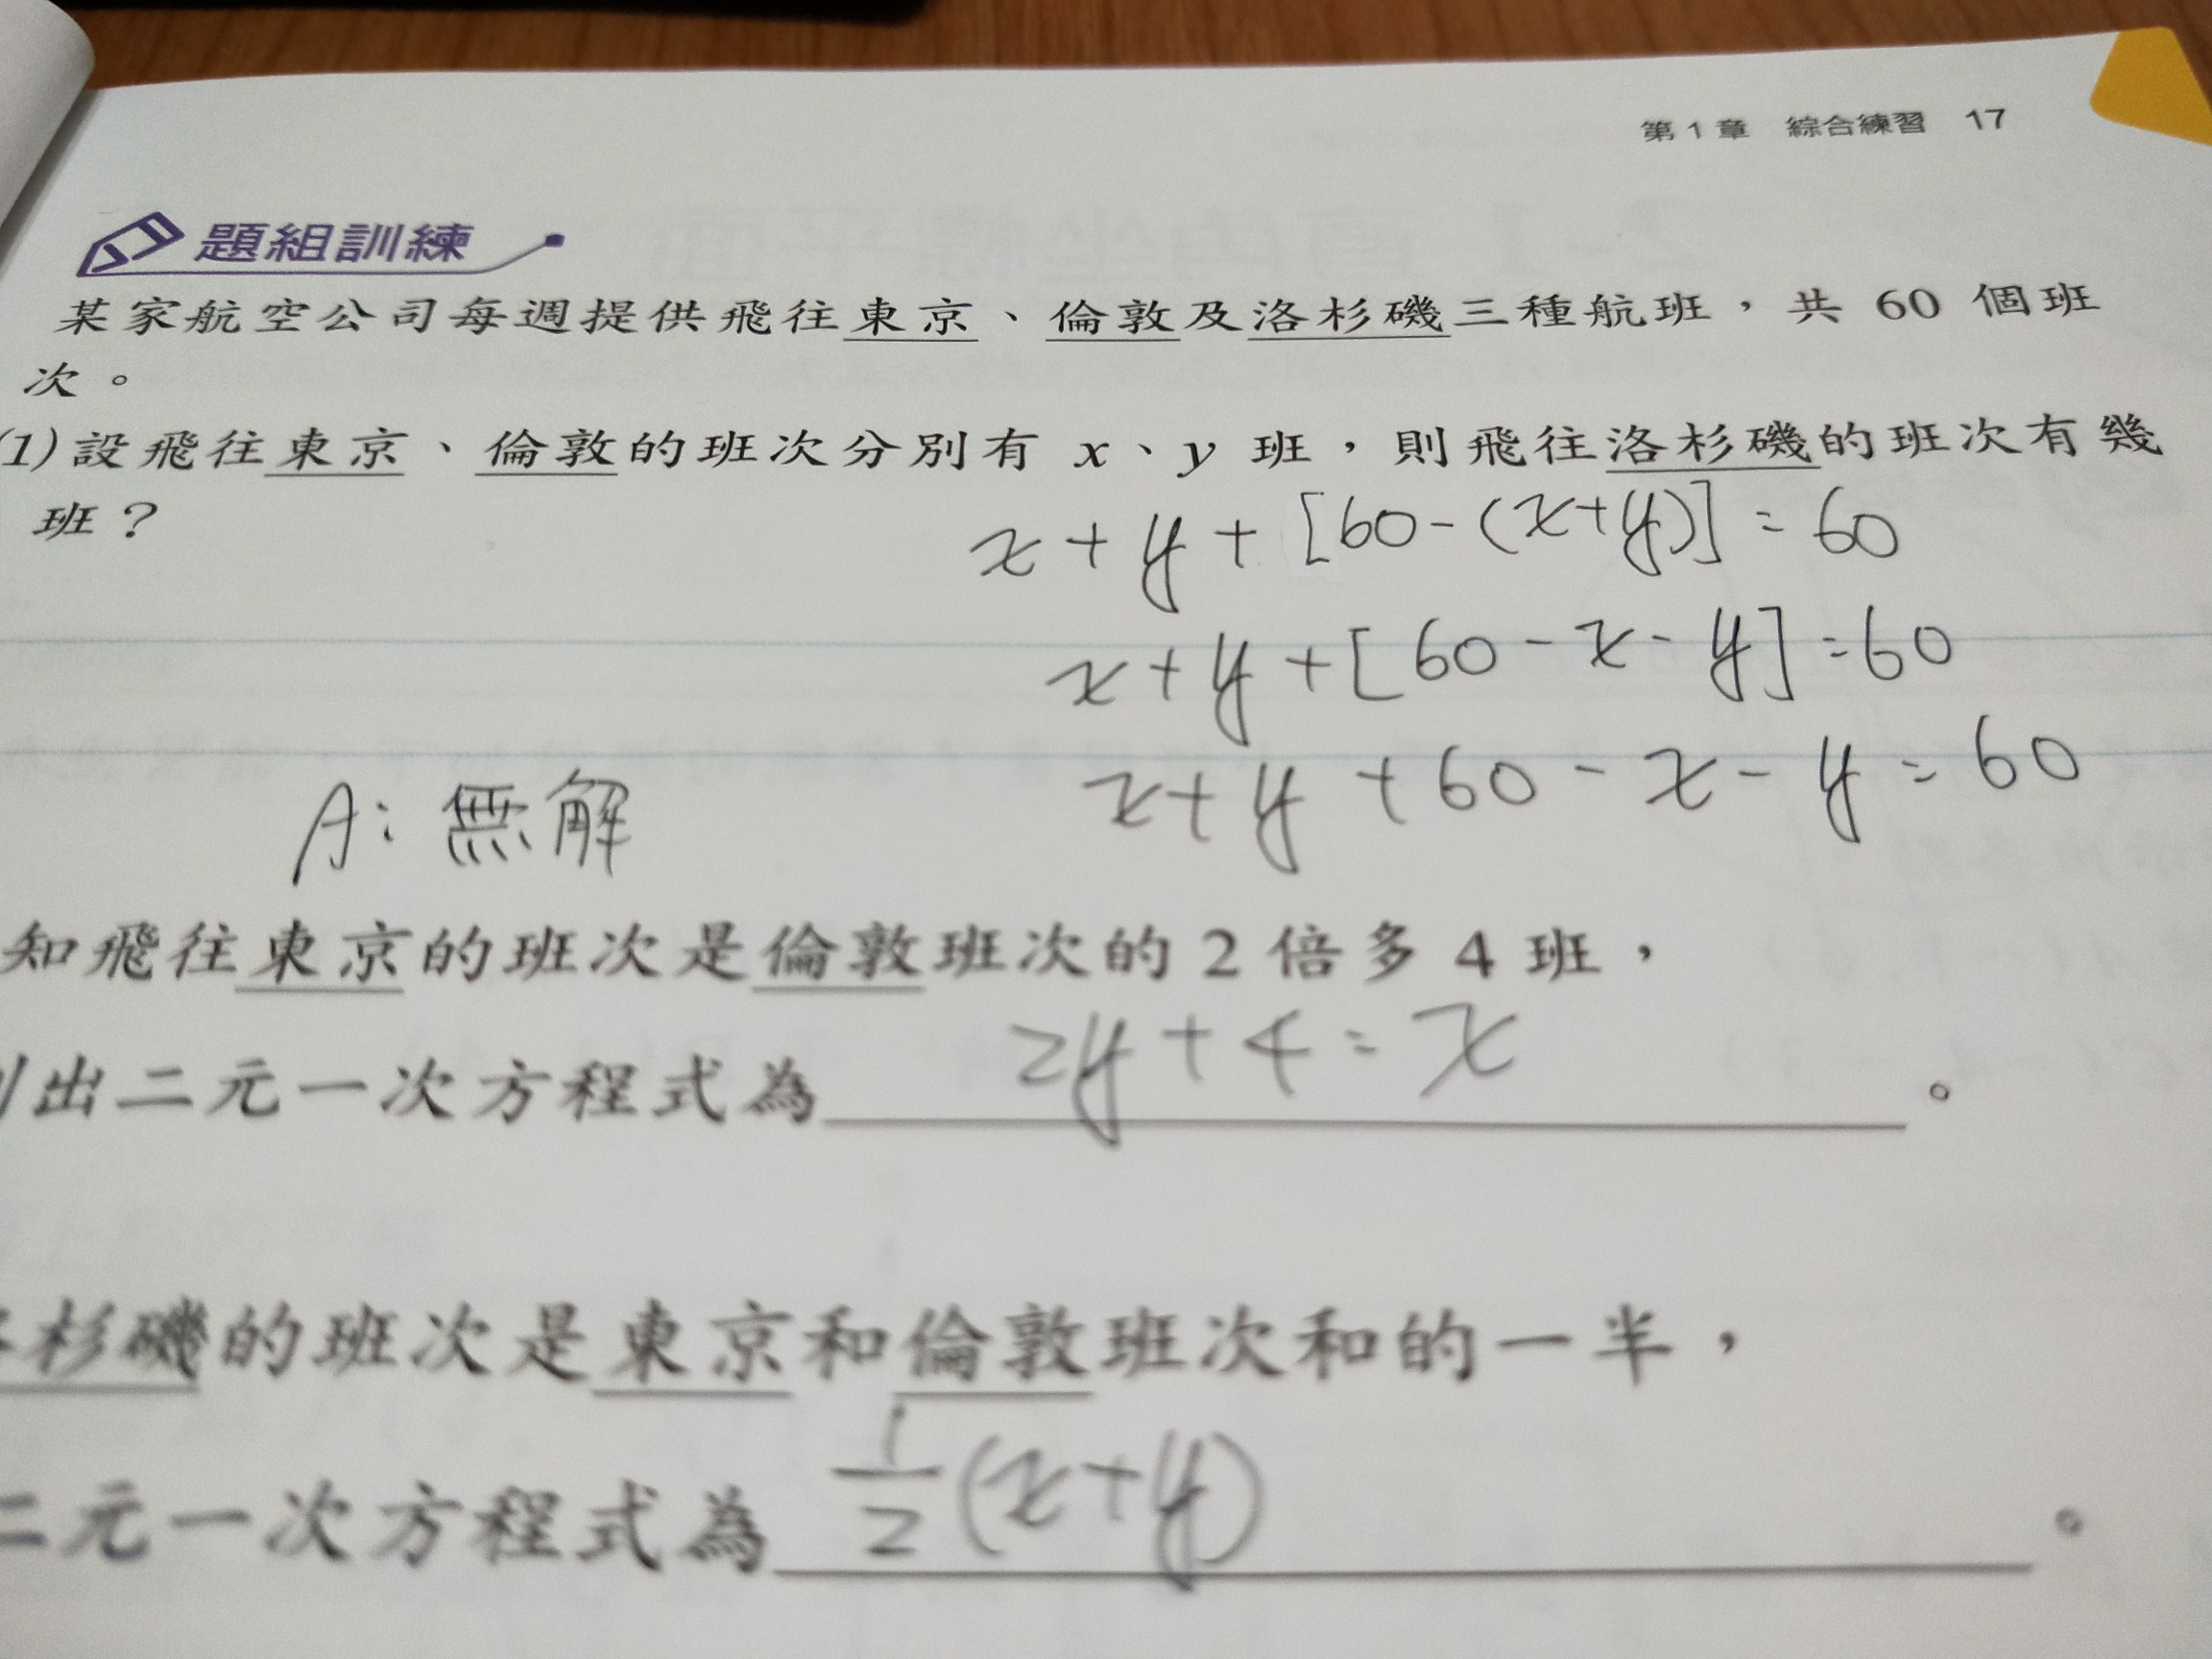 第1章 綜合練習 17
題組訓練
某家航空公司每週提供飛往東京、倫敦及洛杉磯三種航班，共 60 個班
次。
(1)設飛往東京、倫敦的班次分別有 x、y 班，則飛往洛杉磯的班次有幾
班？
x+y+[60-(x+y)]=60
x+y+[60-x-y]=60
x+y+60-x-y=60
A：無解
知飛往東京的班次是倫敦班次的2倍多4班，
2y+4=x
列出二元一次方程式為。
杉磯的班次是東京和倫敦班次和的一半，
1/2(x+y)
二元一次方程式為。